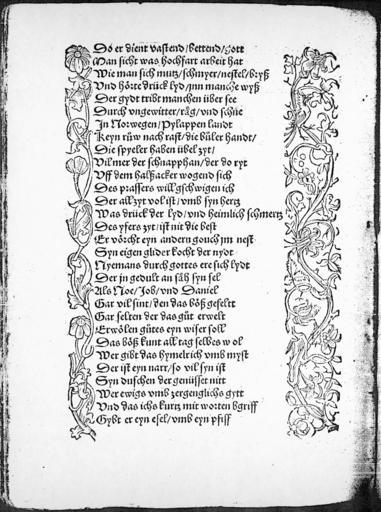 So er dient vastend/bettend/gott
Man sicht was hochfart arbeit hat
Wie man sich mutz/schmyer/nestel/bryß
Vnd hörte drück lyd/jnn manche wyß
Der gydt tribt manchen über see
Durch vngewitter/räg/vnd schne
In Norwegen/Pylappen landt
Keyn rüw nach rast/die büler handt/
Die spyeler haben übel zyt/
Vil mer der schnapphan/der do ryt
Vff dem halßacker wogend sich
Des prassers will gschwigen ich
Der all zyt vol ist/vmb syn hertz
Was drück der lyd/vnd heimlich schmertz
Des yfers zyt/ist nit die best
Er vörcht eyn andern gouch jm nest
Syn eigen glider kocht der nydt
Nyemans durch gottes ere sich lydt
Der jn gedult an säh syn sel
Als Noe/Job/vnd Daniel
Gar vil sint/den das böß gefellt
Gar selten der das güt erwelt
Erwölen gütes eyn wiser soll
Das böß kunt all tag selbes wol
Wer gibt das hymelrich vmb myst
Der ist eyn narr/so vil syn ist
Syn duschen der genüsset nitt
Wer ewigs vmb zergenglichs gytt
Vnd das ichs kurtz mit worten bgriff
Gybt er eyn esel/vmb eyn pfiff